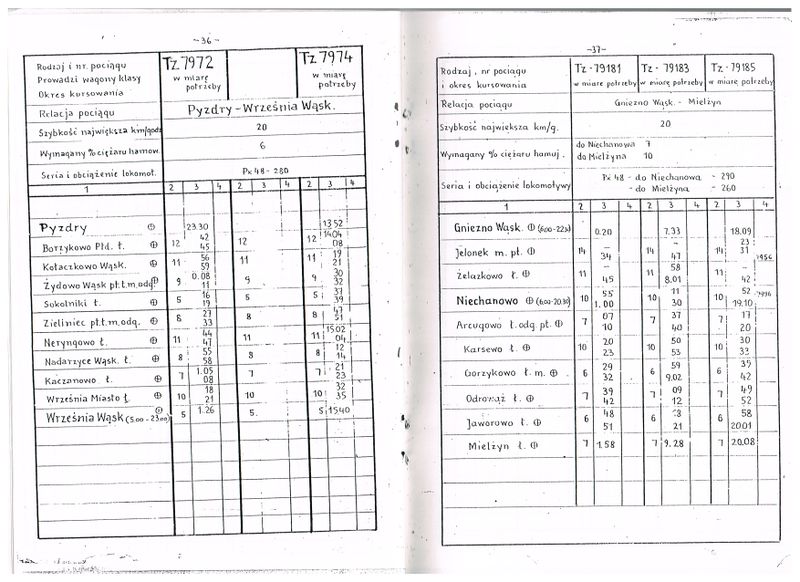 -36-
Rodzaj i nr. pociągu
Prowadzi wagony klasy
Okres kursowania
Tz 7972
w miarę
potrzeby
Tz 7974
w miarę
potrzeby
Relacja pociągu
Pyzdry-Września Wąsk.
Szybkość największa km/godz
20
Wymagany % ciężaru hamow.
6
Seria i obciążenie lokomot.
Px 48 - 280
1 2 3 4 2 3 4 2 3 4
Pyzdry 23.30 13 52
Borzykowo Płd. ł. ⊕ 12 42 45 12 12 14 04 08
Kołaczkowo Wąsk. ⊕ 11 56 59 11 11 19 21
Żydowo Wąsk pł.t.m,odg ⊕ 9 0.08 11 9 9 30 32
Sokolniki ł. ⊕ 5 16 19 5 5 37 39
Zieliniec pł.t.m,odg. ⊕ 8 27 33 8 8 47 51
Neryngowo ł. ⊕ 11 44 47 11 11 15 02 04
Nadarzyce Wąsk. ł. ⊕ 8 55 58 8 8 12 14
Kaczanowo ł. ⊕ 7 1.05 08 7 7 21 23
Września Miasto ł. ⊕ 10 18 21 10 10 32 35
Września Wąsk (5.00-23.00) 5 1.26 5. 5 15 40
-37-
Rodzaj, nr pociągu
i okres kursowania
Tz - 79181
w miare potrzeby
Tz - 79183
w miarę potrzeby
Tz - 79185
w miarę potrzeby
Relacja pociągu
Gniezno Wąsk. - Mielżyn
Szybkość największa km/g.
20
Wymagany % ciężaru hamuj.
do Niechanowa 7
do Mielżyna 10
Seria i obciążenie lokomotywy
Px 48 - do Niechanowa - 290
- do Mielżyna - 260
1 2 3 4 2 3 4 2 3 4
Gniezno Wąsk. ⊕ 0.20 7.33 18.09
Jelonek m. pł. ⊕ 14 - 34 14 - 47 14 23 31
Żelazkowo ł. ⊕ 11 - 45 11 58 8.01 11 - 42
Niechanowo ⊕ (6.00-20.30) 10 55 1.00 10 11 30 10 52 19.10
Arcugowo ł. odg. pł. ⊕ 7 07 10 7 37 40 7 17 20
Karsewo ł. ⊕ 10 20 23 10 50 53 10 30 33
Gorzykowo ł. m. ⊕ 6 29 32 6 59 9.02 6 39 42
Odrowąż ł. ⊕ 7 39 42 7 09 12 7 49 52
Jaworowo ł. ⊕ 6 48 51 6 18 21 6 58 2001
Mielżyn ł. ⊕ 7 1.58 7 9.28 7 20.08